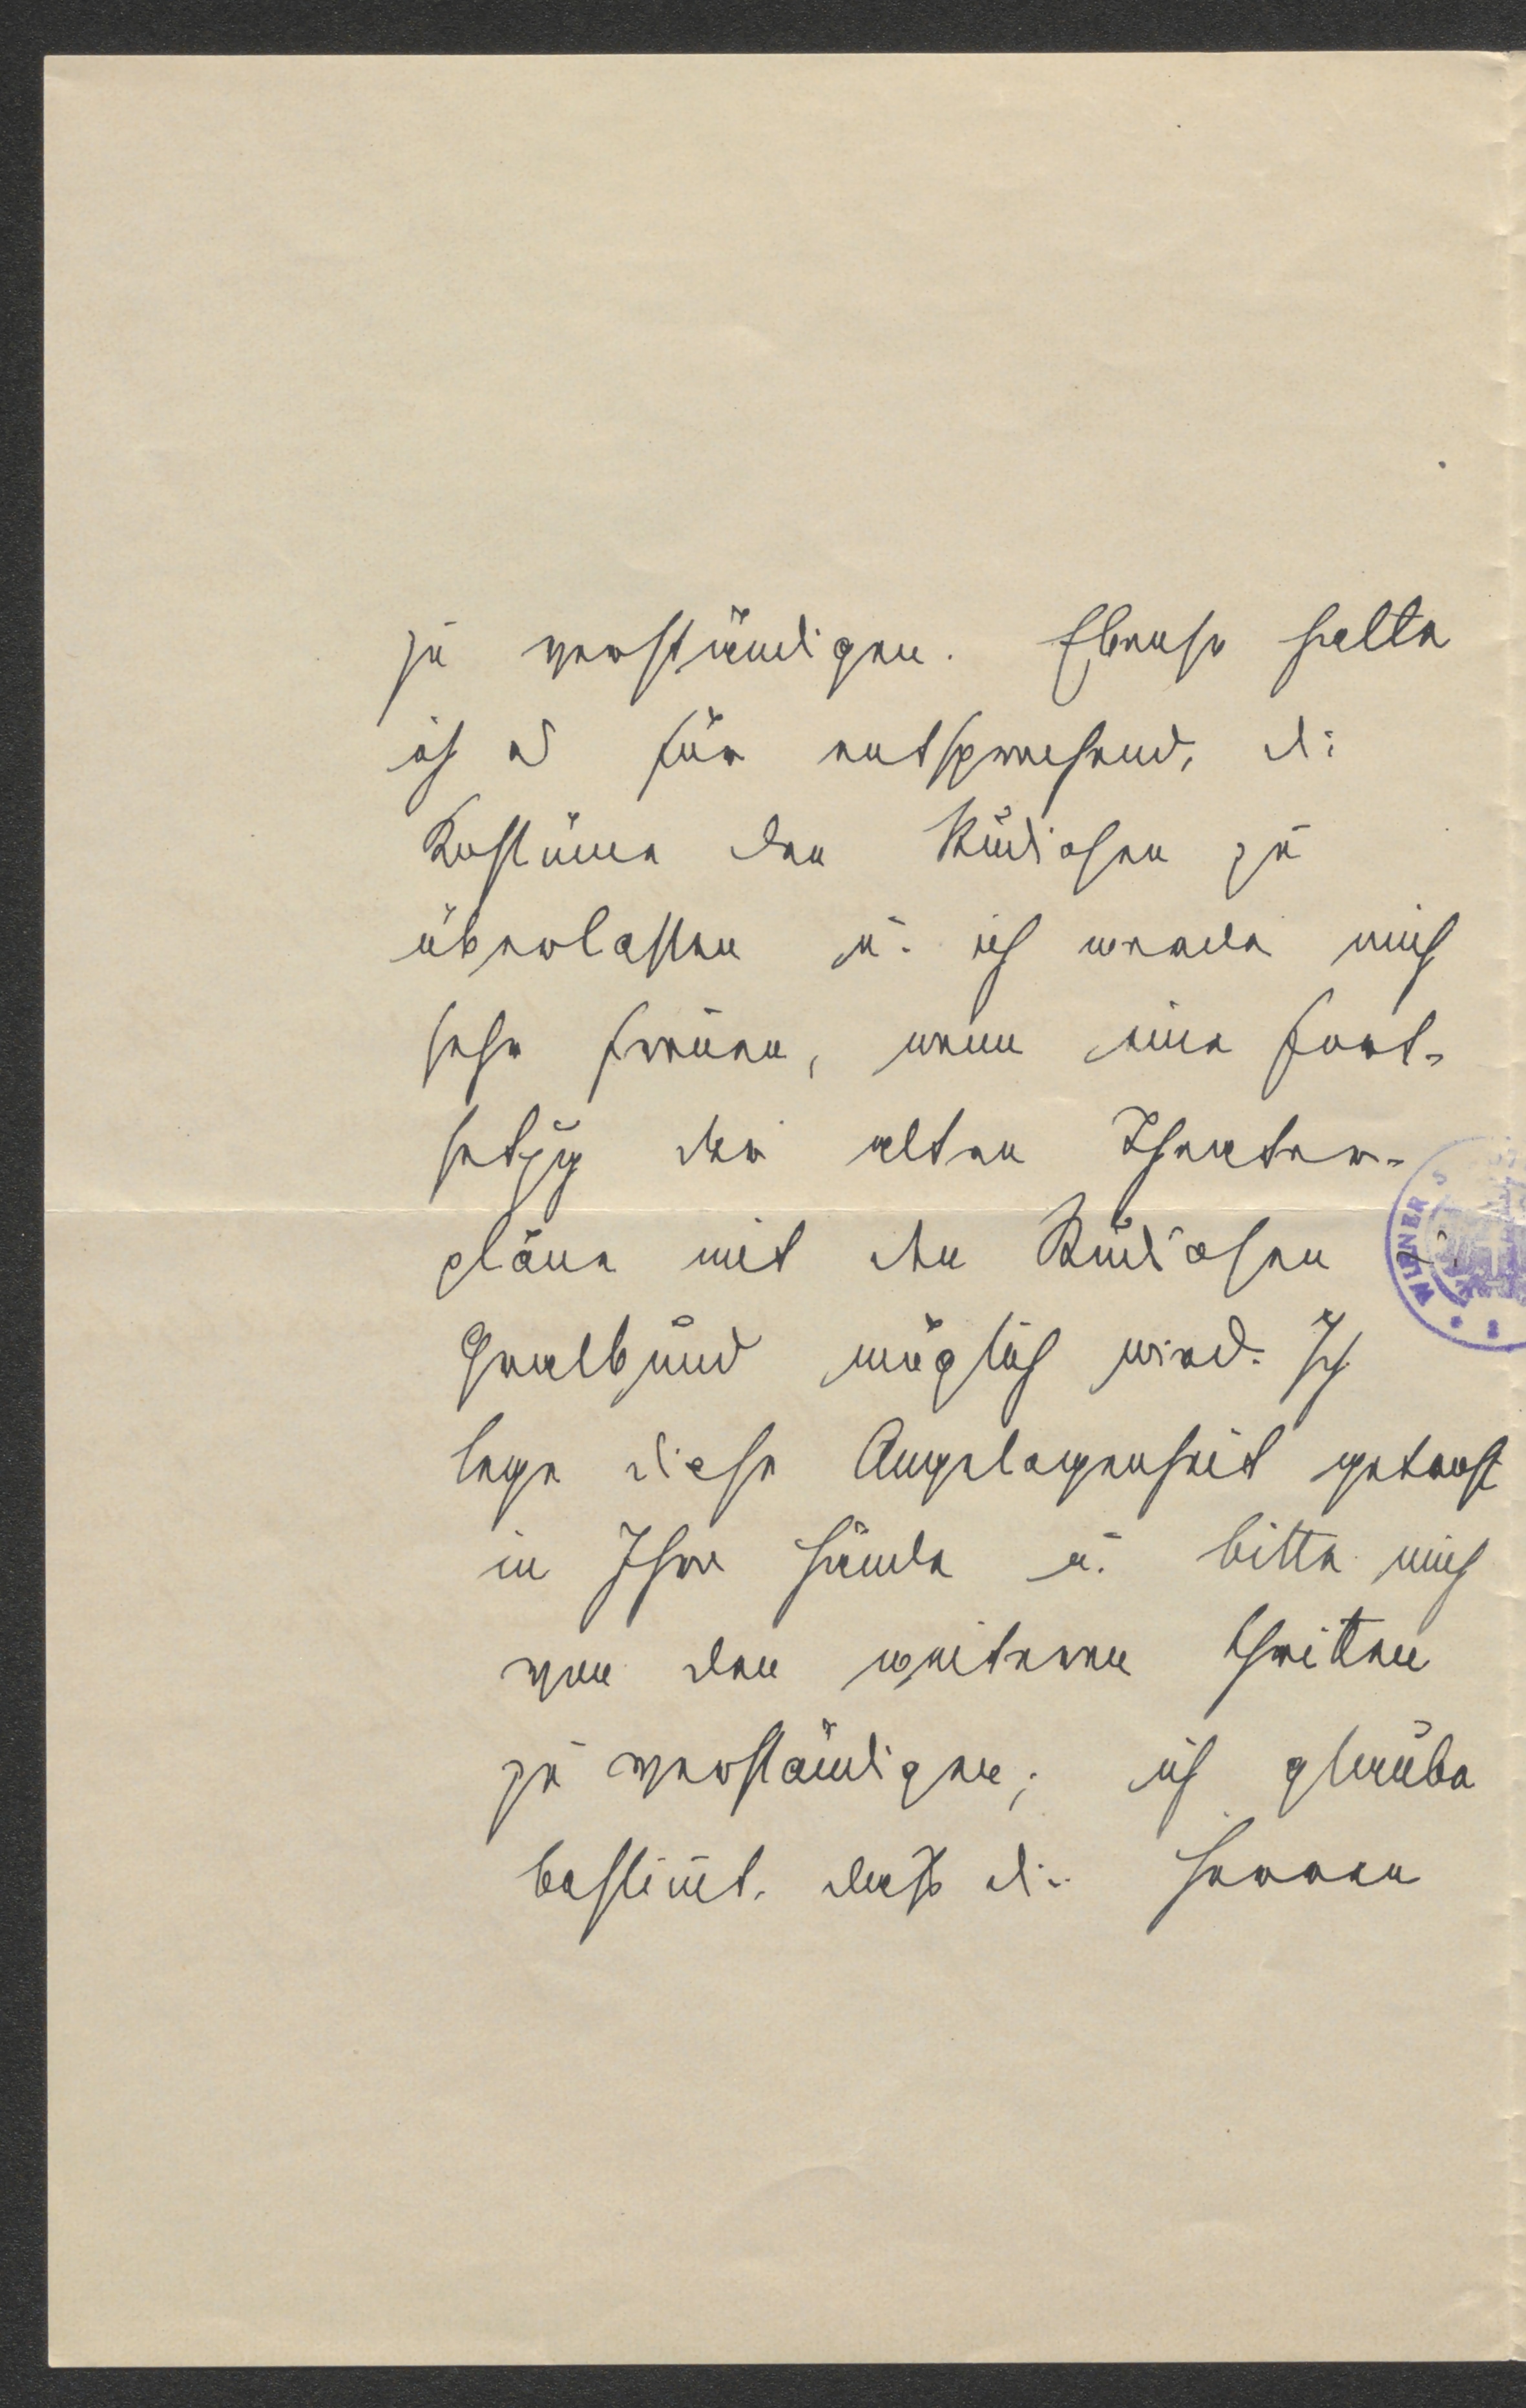 zu verständigen. Ebenso halte
ich es für entsprechend, die
Kostüme den Kindiſchen zu
überlassen u. ich werde mich
sehr freuen, wenn eine Fort-
setzg der alten Theater-
pläne mit den
Gralbund möglich wird. Ich
lege diese Angelegenheit getrost
in Ihre Hände u. bitte mich
von den weiteren Schritten
zu verständigen; ich glaube
bestimt, daß die Herren
WIENER